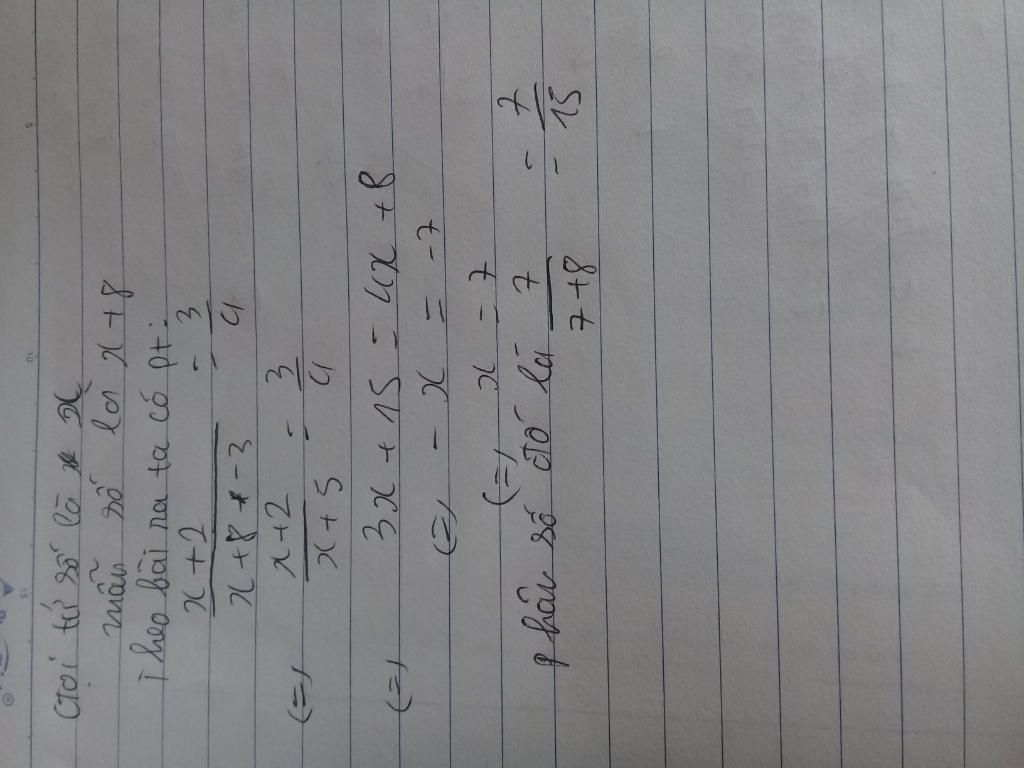 Gọi tử số là x
mẫu số là x + 8
Theo bài ra ta có pt:
x + 2 / x + 8 - 3 = 3 / 4
(=) x + 2 / x + 5 = 3 / 4
(=) 3x + 15 = 4x + 8
(=) - x = - 7
(=) x = 7
phân số đó là 7 / 7 + 8 = 7 / 15